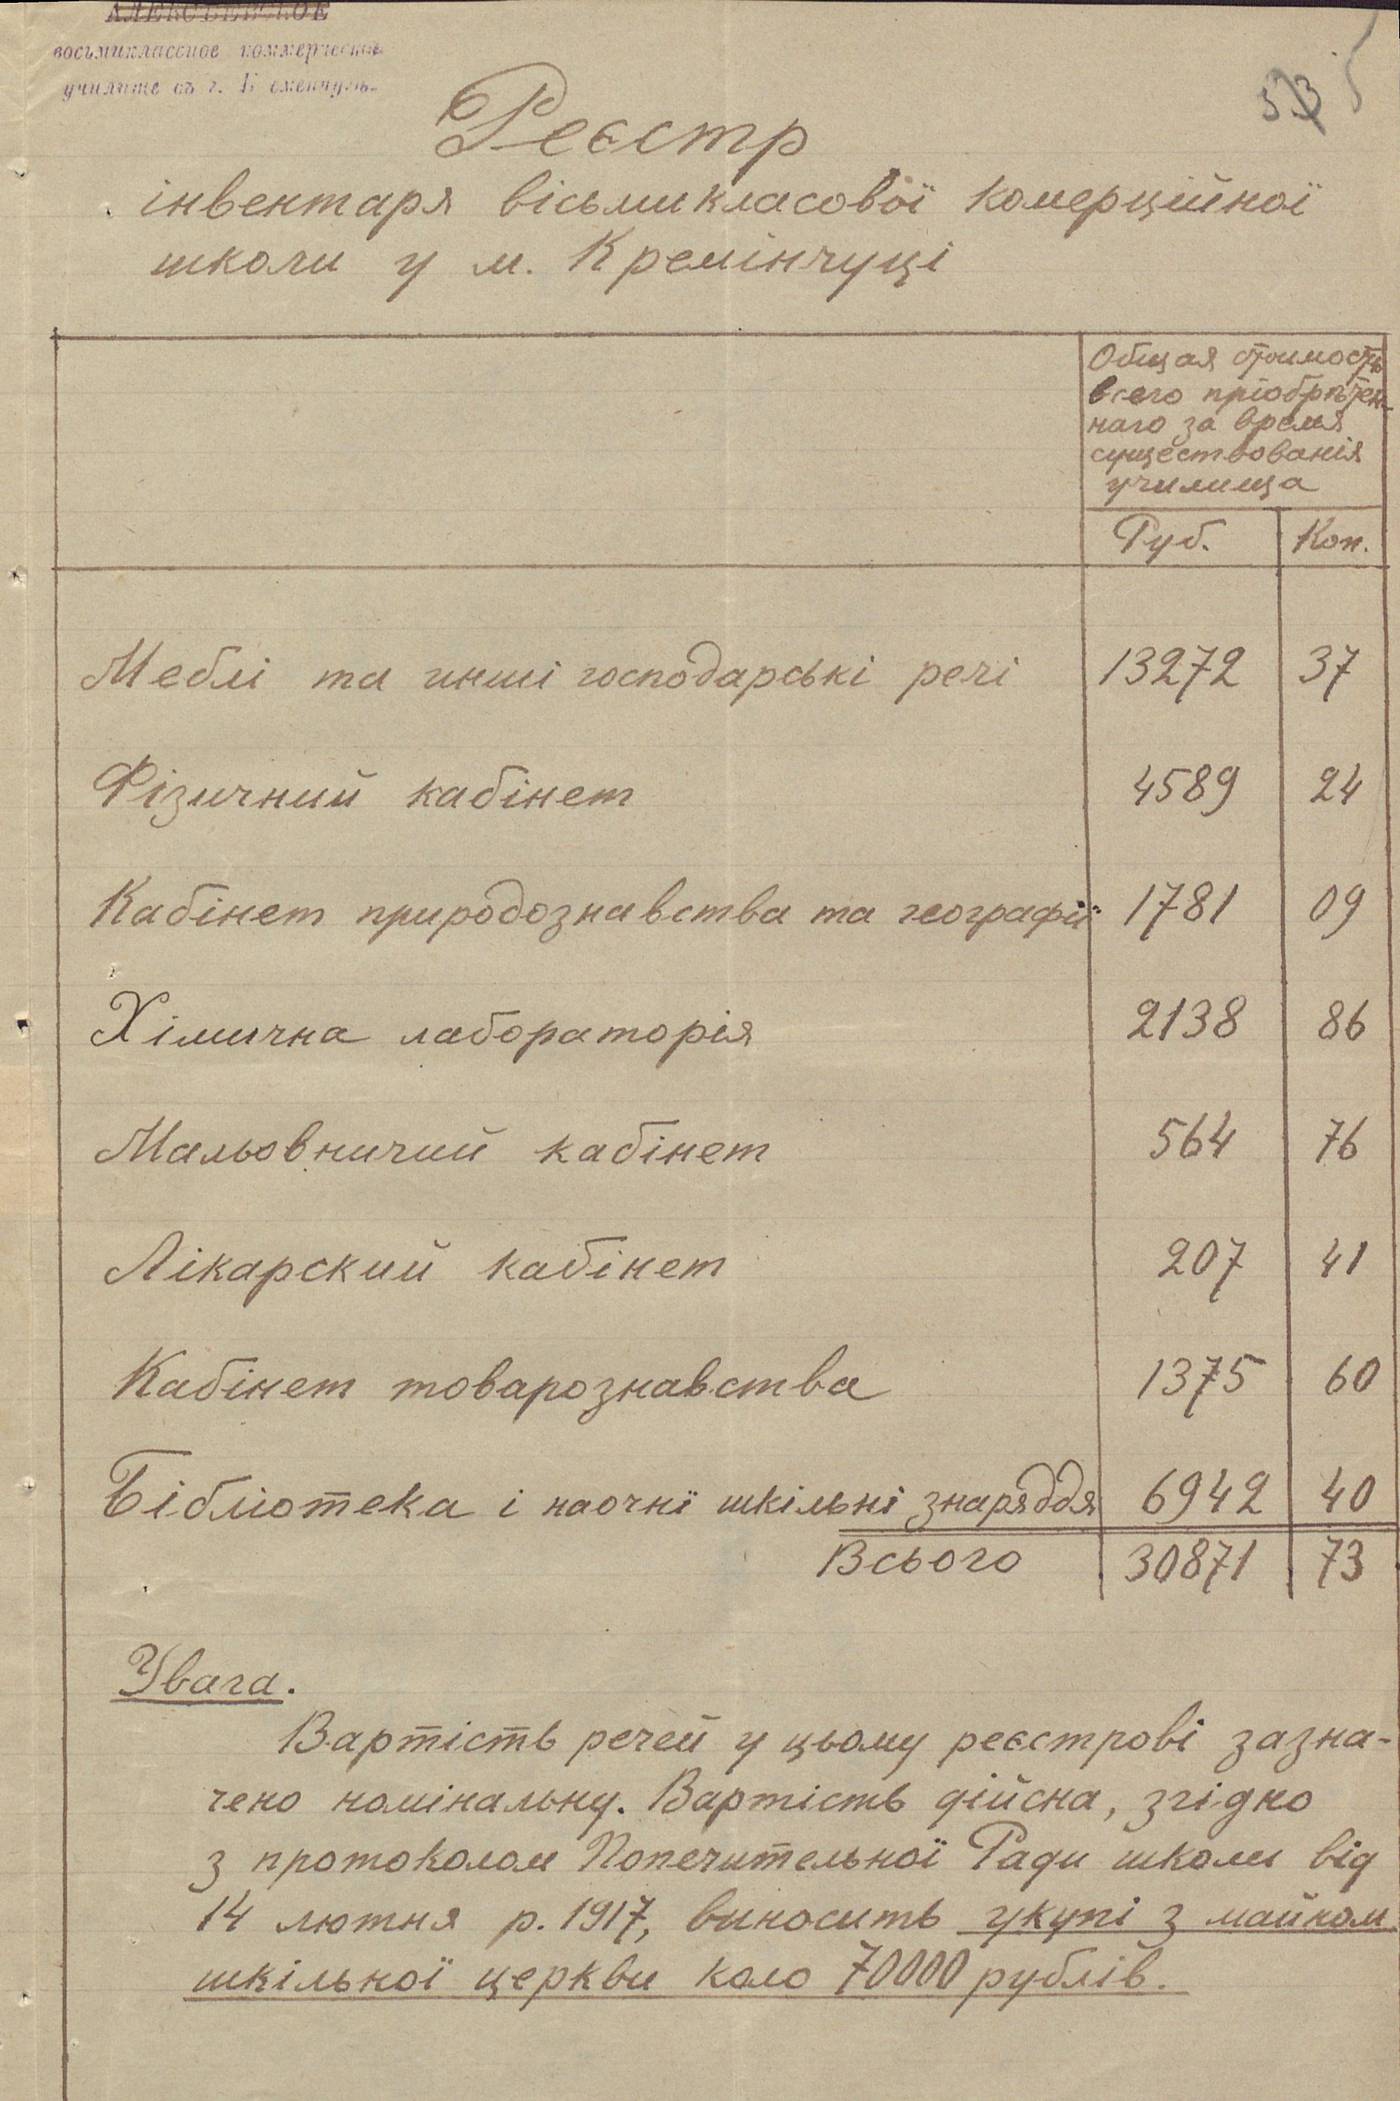 АЛЕКСѢЕВСКОЕ
восьмиклассное коммерческое
училище въ г. Кременчугѣ.
53
Реєстр
інвентаря вісьмикласової комерційної
школи у м. Кремінчуці
Общая стоимость
всего пріобрѣтен-
наго за время
существованія
училища
Руб. Коп.
Меблі та инші господарські речі 13272 37
Фізичний кабінет 4589 24
Кабінет природознавства та географії 1781 09
Хімична лабораторія 2138 86
Мальовничий кабінет 564 76
Лікарский кабінет 207 41
Кабінет товарознавства 1375 60
Бібліотека і наочнї шкільні знаряддя 6942 40
Всього 30871 73
Увага.
Вартість речей у цьому реєстрові зазна-
чено номінальну. Вартість дійсна, згідно
з протоколом Попечительної Ради школи від
14 лютня р. 1917, виносить укупі з майном
шкільної церкви коло 70000 рублів.